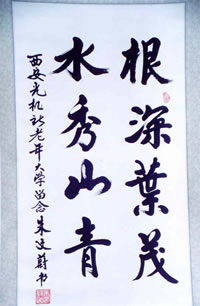 根深葉茂
水秀山青
西安光机所老年大学留念 朱文蔚书